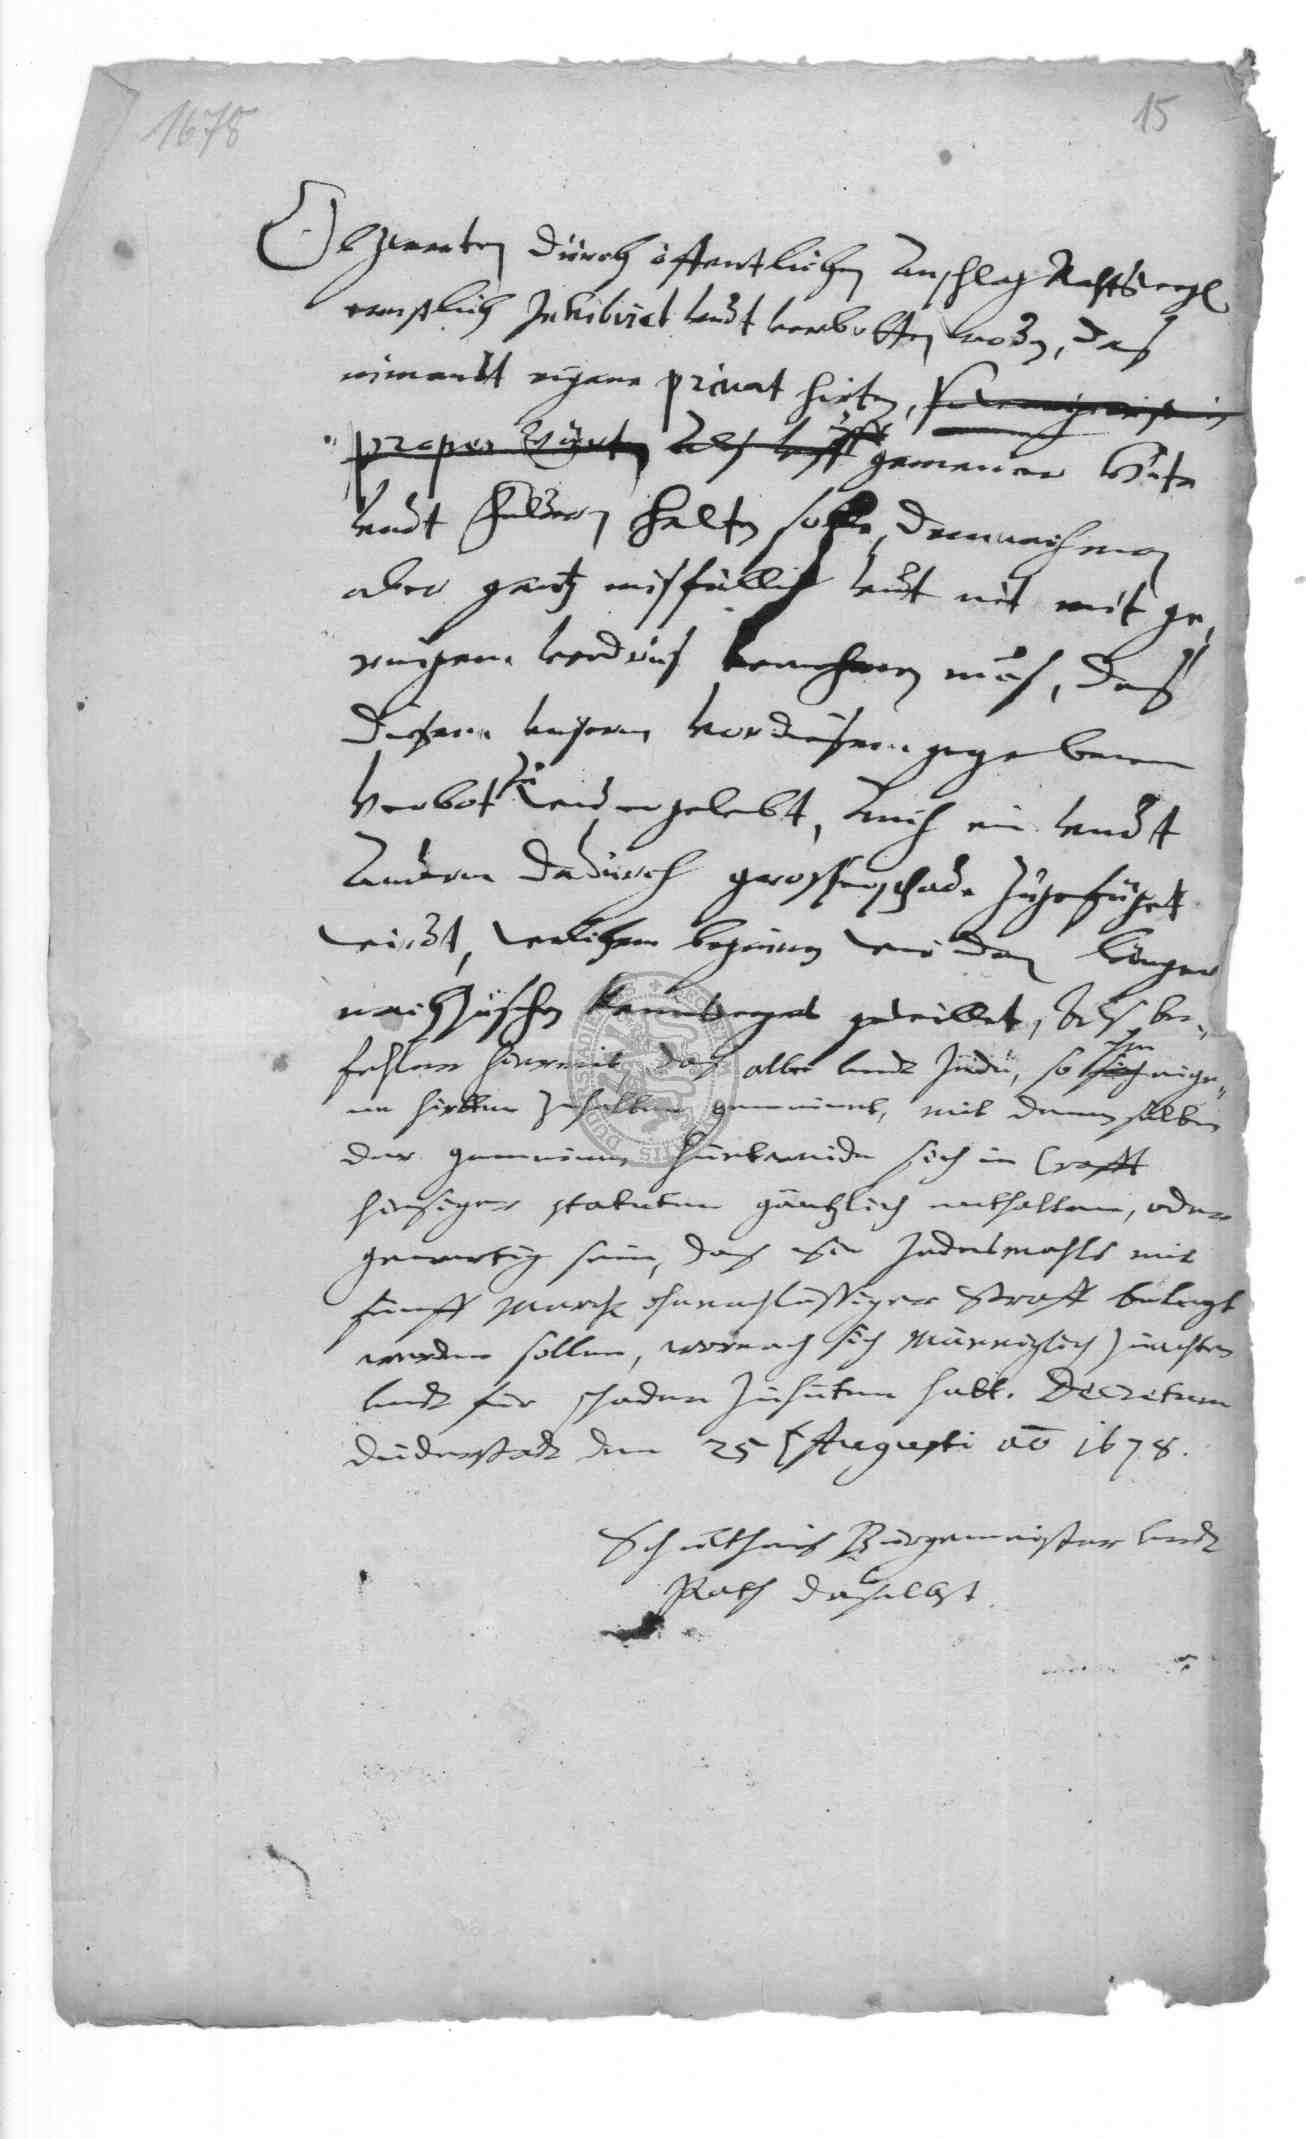 1678
15
Obzwarten durch öffentlichen Anschlag Rahts
ernstlich Inhibirt undt verbotten wordn, daß
nimandt eigene privat hirten,
auff gemeiner
undt feldern halten solle, demnach man
aber gantz misfällig undt nit mit ge,
ringem verdruß vernehmen muß, daß
diesem unserm vordiesem gegebenen
Verbot zu wieder gelebt, Auch ein undt
Andern dadurch grosser schade zugefüget
wirdt, welchem beginnen wir dan länger
nachzusehen gewillet, Alß be-
fehlen hiermit, daß alle undt Jede, so eige-
ne hirtten zuhalten gemeinet, mit denenselben
der gemeinen sich in Crafft
hiesiger statuten gäntzlich enthalten, oder
gewertig sein, daß sie Jedesmahls mit
fünff Marck ohnnachlässiger Straff belegt
werden sollen, wornach sich Männiglich zu achten
undt für schaden zuhüten hatt. Decretum
Duderstadt den 25 Augusti ao 1678.
Schultheis Bürgemeister undt
Rath daselbst